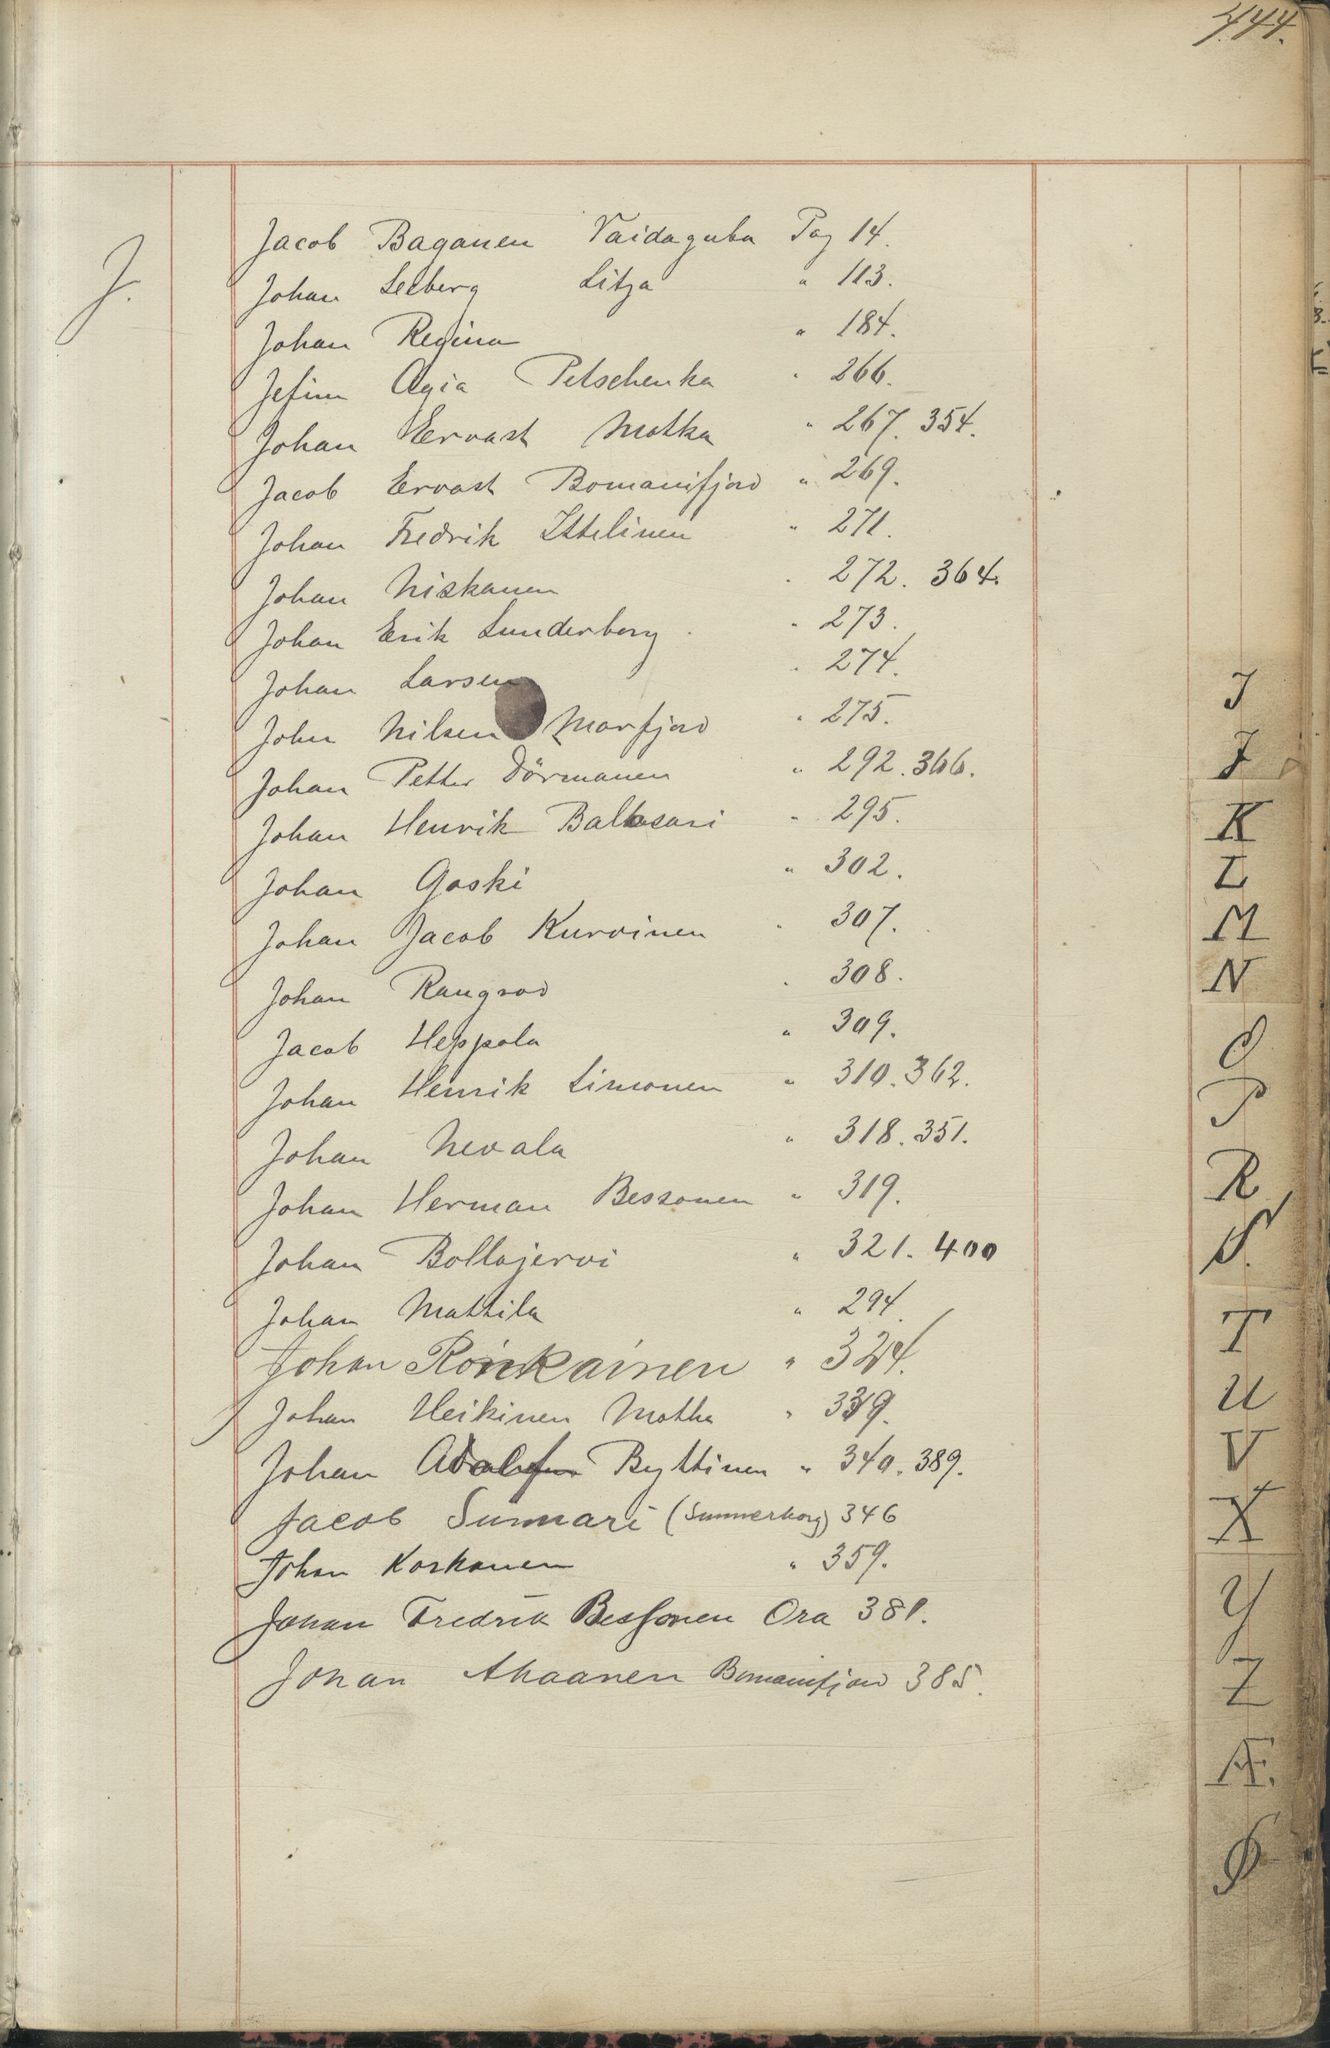 444.
J.
Jacob Baganen Vaidaguba Pag 14.
Johan Seeberg Litza " 113.
Johan Regina " 184.
Jefim Agia Petschenka " 266.
Johan Ervast Motka " 267. 354.
Jacob Ervast Bomanifjord " 269.
Johan Fredrik Ittelinen " 271.
Johan Niskanen " 272. 364.
Johan Erik Lunderborg " 273.
Johan Larsen " 274.
John Nilsen Morfjord " 275.
Johan Petter Dörmanen " 292. 366.
Johan Henrik Baltasari " 295.
Johan Goski " 302.
Johan Jacob Kurvinen " 307.
Johan Rangrad " 308.
Jacob Heppola " 309.
Johan Henrik Simonen " 310. 362.
Johan Nevala " 318. 351.
Johan Herman Bessonen " 319.
Johan Bollajervi " 321. 400
Johan Mattila " 294.
Johan Ronkainen " 324.
Johan Heikinen Motka " 339.
Johan Adolf Byttinen " 340. 389.
Jacob Sumari (Summerborg) 346
Johan Korkonen " 359.
Johan Fredrik Bessonen Ora 381.
Johan Akaanen Bomanifjord 385.
I
J
K
L
M
N
O
P
R
S.
T
U
V
X
Y
Z
Æ.
Ø